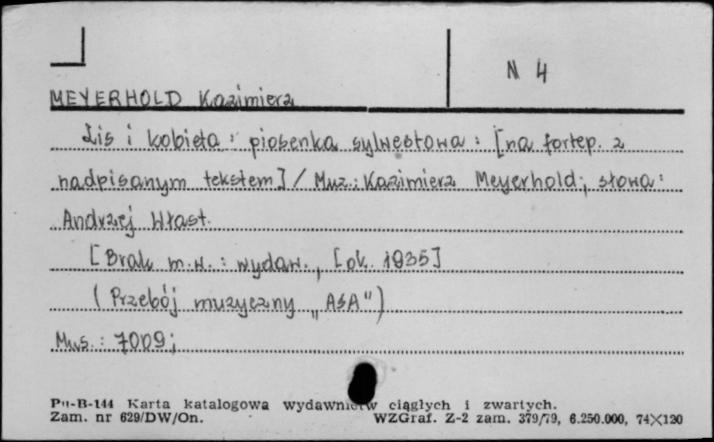 N 4
MEYERHOLD Kazimierz
Lis i kobieta : piosenka sylwestowa : [na fortep. z
nadpisanym tekstem] / Muz.: Kazimierz Meyerhold; słowa:
Andrzej Włast.
[Brak m.w. : wydaw., [ok. 1935]
(Przebój muzyczny „ASA")
Mus.: 7009;
Pu-B-144 Karta katalogowa wydawnictw ciągłych i zwartych.
Zam. nr 629/DW/On. WZGraf. Z-2 zam. 379/79, 6.250.000, 74×120